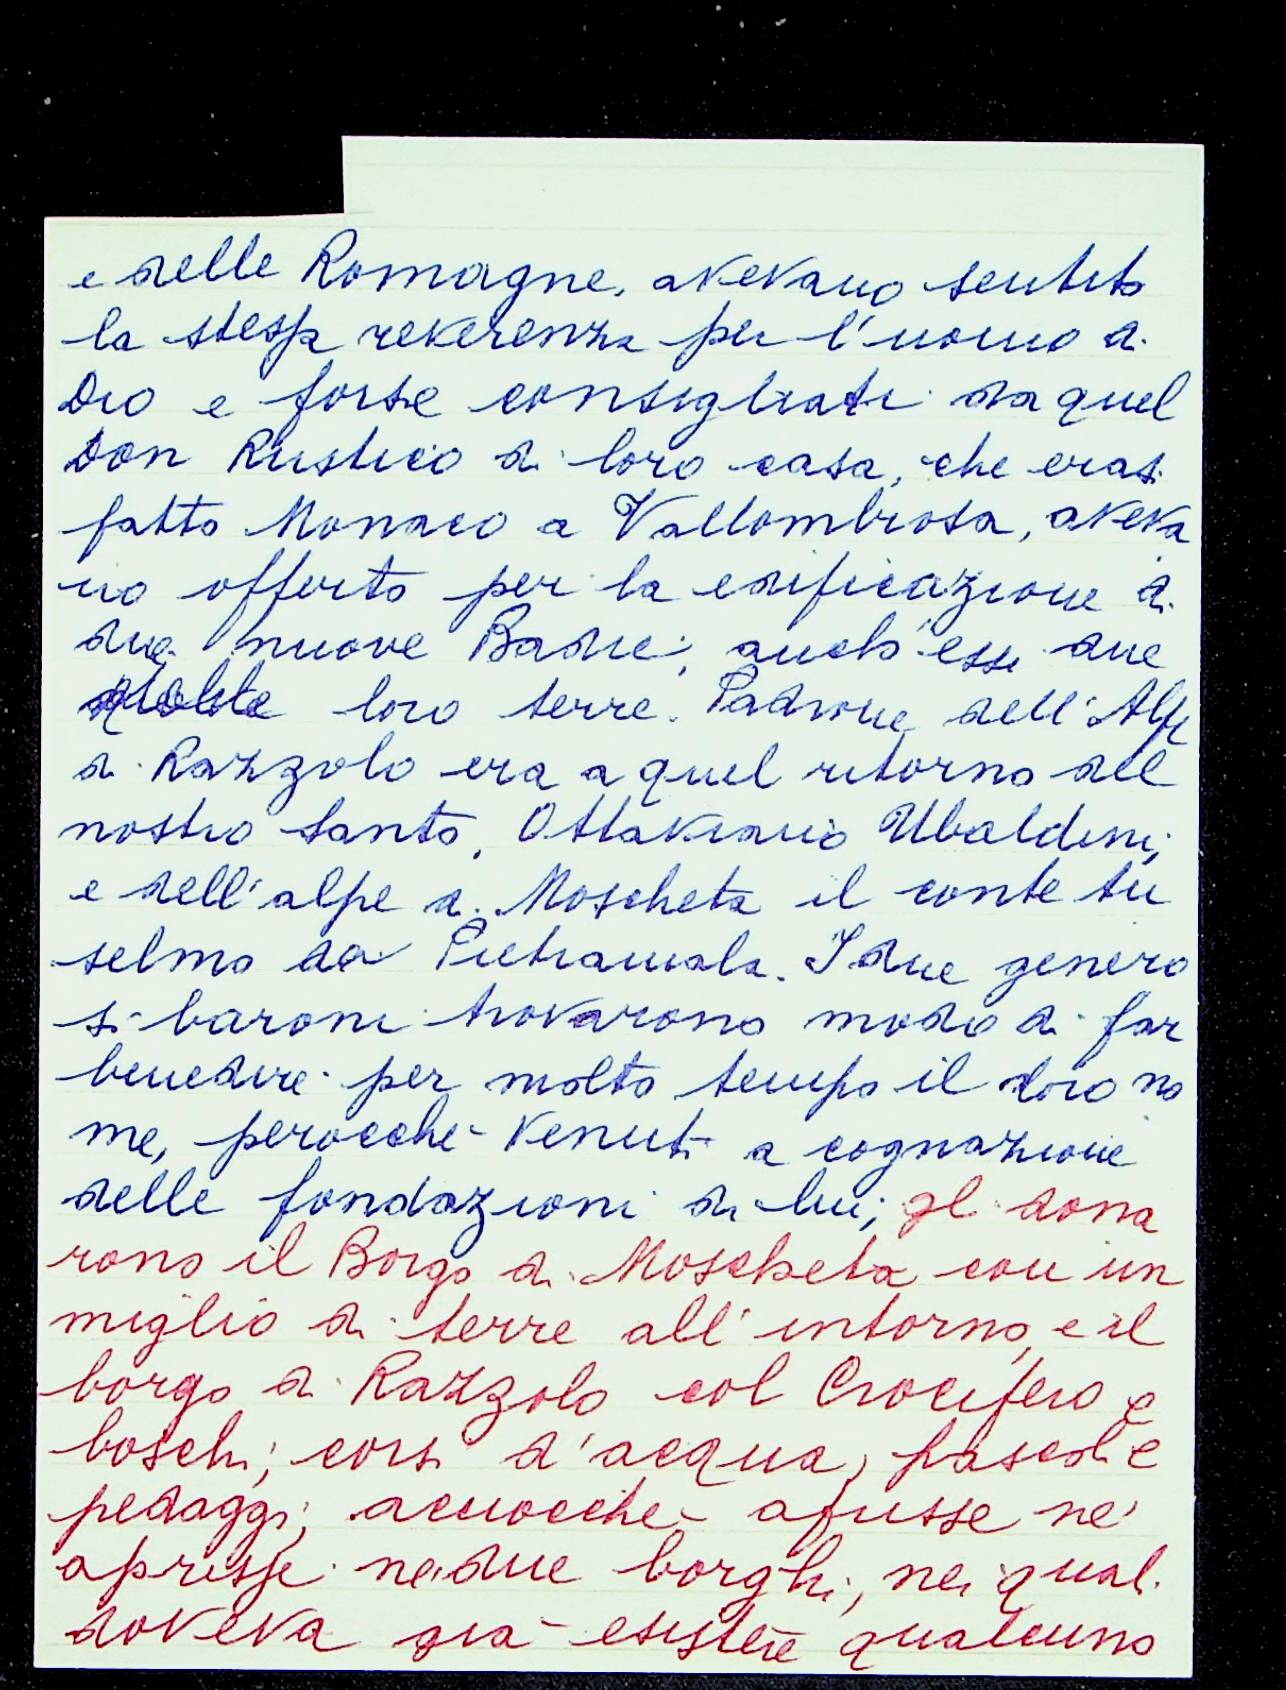 e delle Romagne, avevano sentito
la stessa reverenza per l'uomo di
Dio e forse consigliati da quel
Don Rustico di loro casa, che erasi
fatto Monaco a Vallombrosa, aveva
no offerto per la edificazione di
due nuove Badie, anch'essi due
loro terre. Padrone dell'Alpe
di Razzolo era a quel ritorno del
nostro Santo, Ottaviano Ubaldini,
e dell'alpe di Moscheta il conte An
selmo da Pietramala. I due genero
si baroni trovarono modo di far
benedire per molto tempo il loro no
me, perocchè venuti a cognazione
delle fondazioni di lui, gli dona
rono il Borgo di Moscheta con un
miglio di terre all'intorno, e il
borgo di Razzolo col Crocifero e
boschi, corsi d'acqua, pascoli e
pedaggi, acciocchè ne'
aprisse nei due borghi, nei quali
doveva già esistere qualcuno